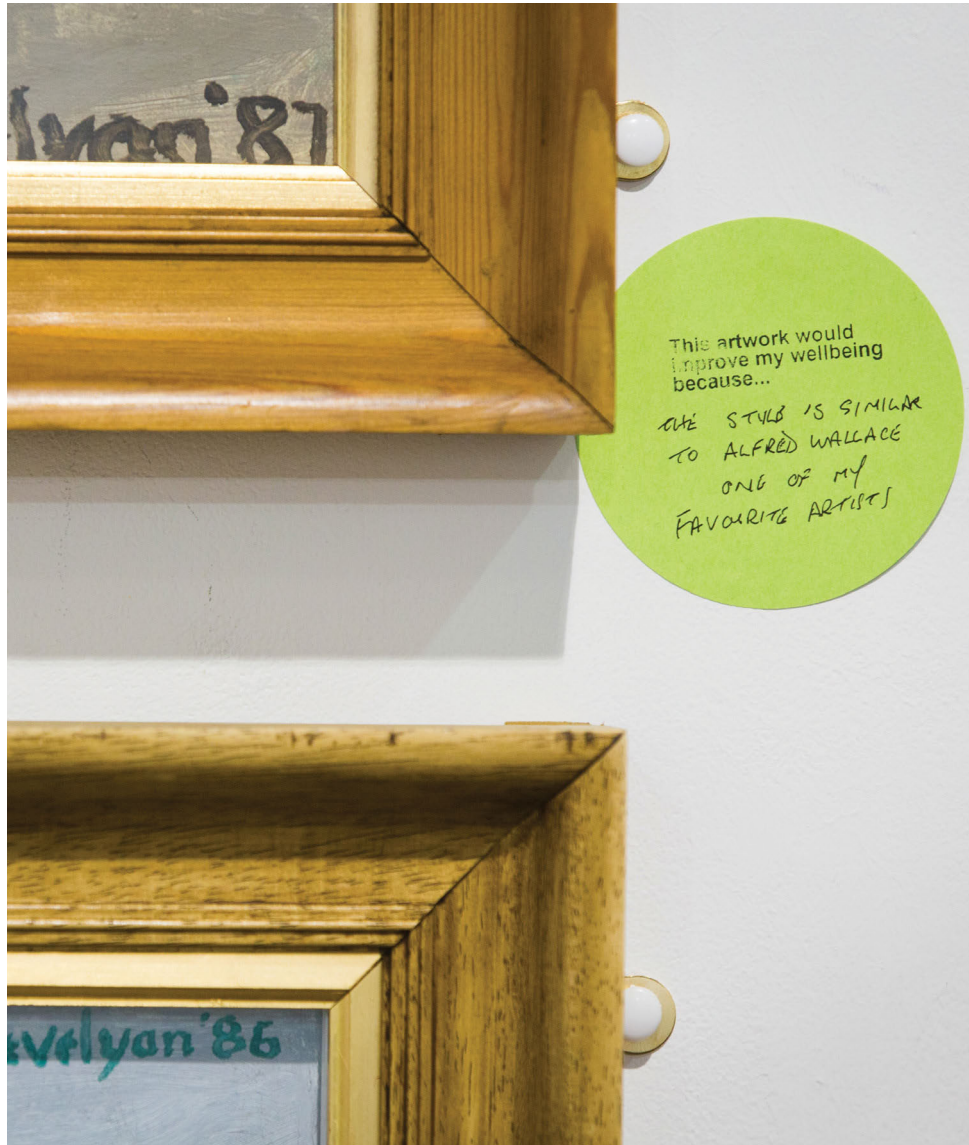 lyan '87
This artwork would
improve my wellbeing
because...
THE STYLE IS SIMILAR
TO ALFRED WALLACE
ONE OF MY
FAVOURITE ARTISTS
evelyan '86